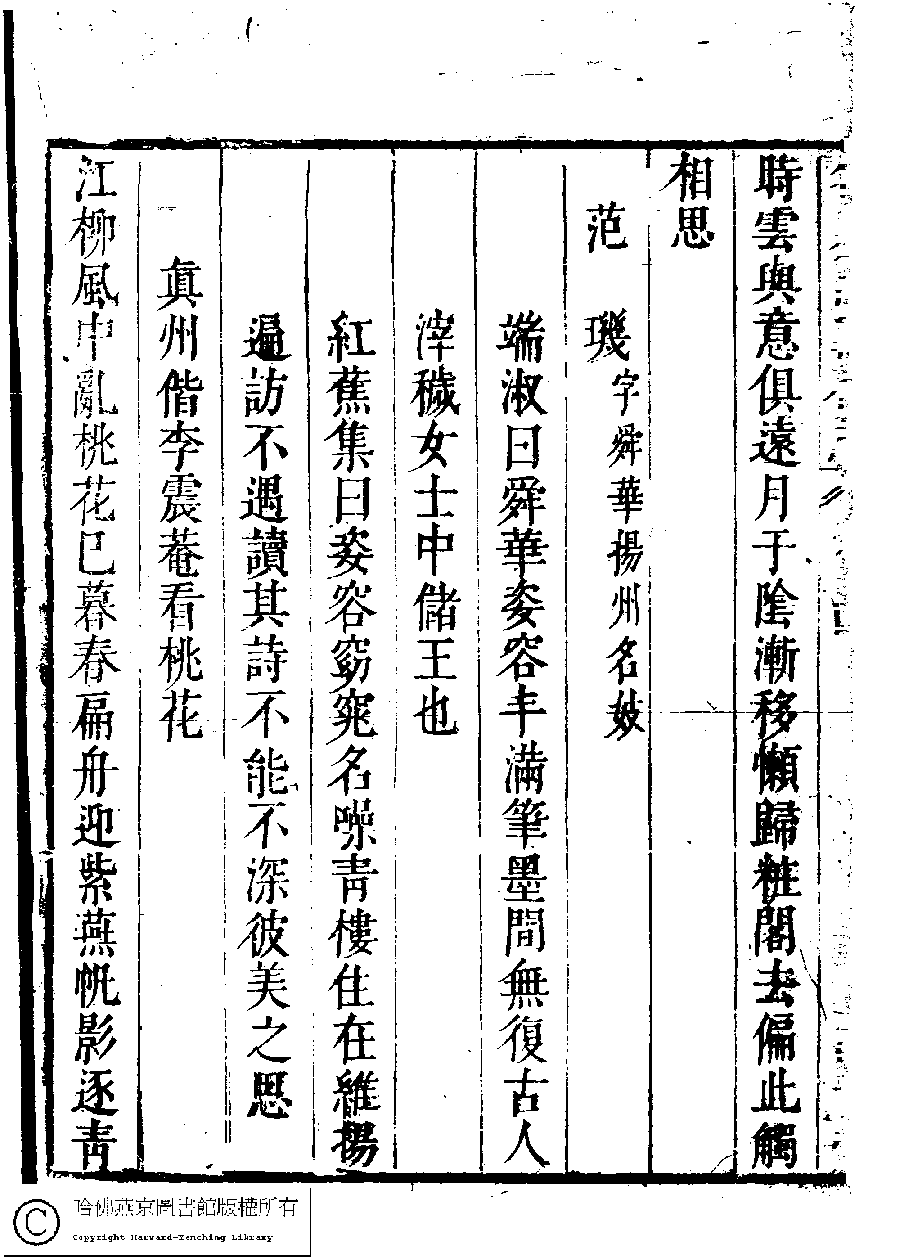 時雲與意俱遠月于陰漸移懶歸粧閣去偏此觸
相思
范　璣字舜華揚州名妓
端淑曰舜華姿容丰滿筆墨間無復古人
滓穢女士中儲王也
紅蕉集曰姿容窈窕名噪靑樓住在維揚
遍訪不遇讀其詩不能不深彼美之思
眞州偕李震菴看桃花
江柳風中亂桃花已暮春扁舟迎紫燕帆影逐靑
哈佛燕京圖書館版權所有
Copyright Harvard-Yenching Library